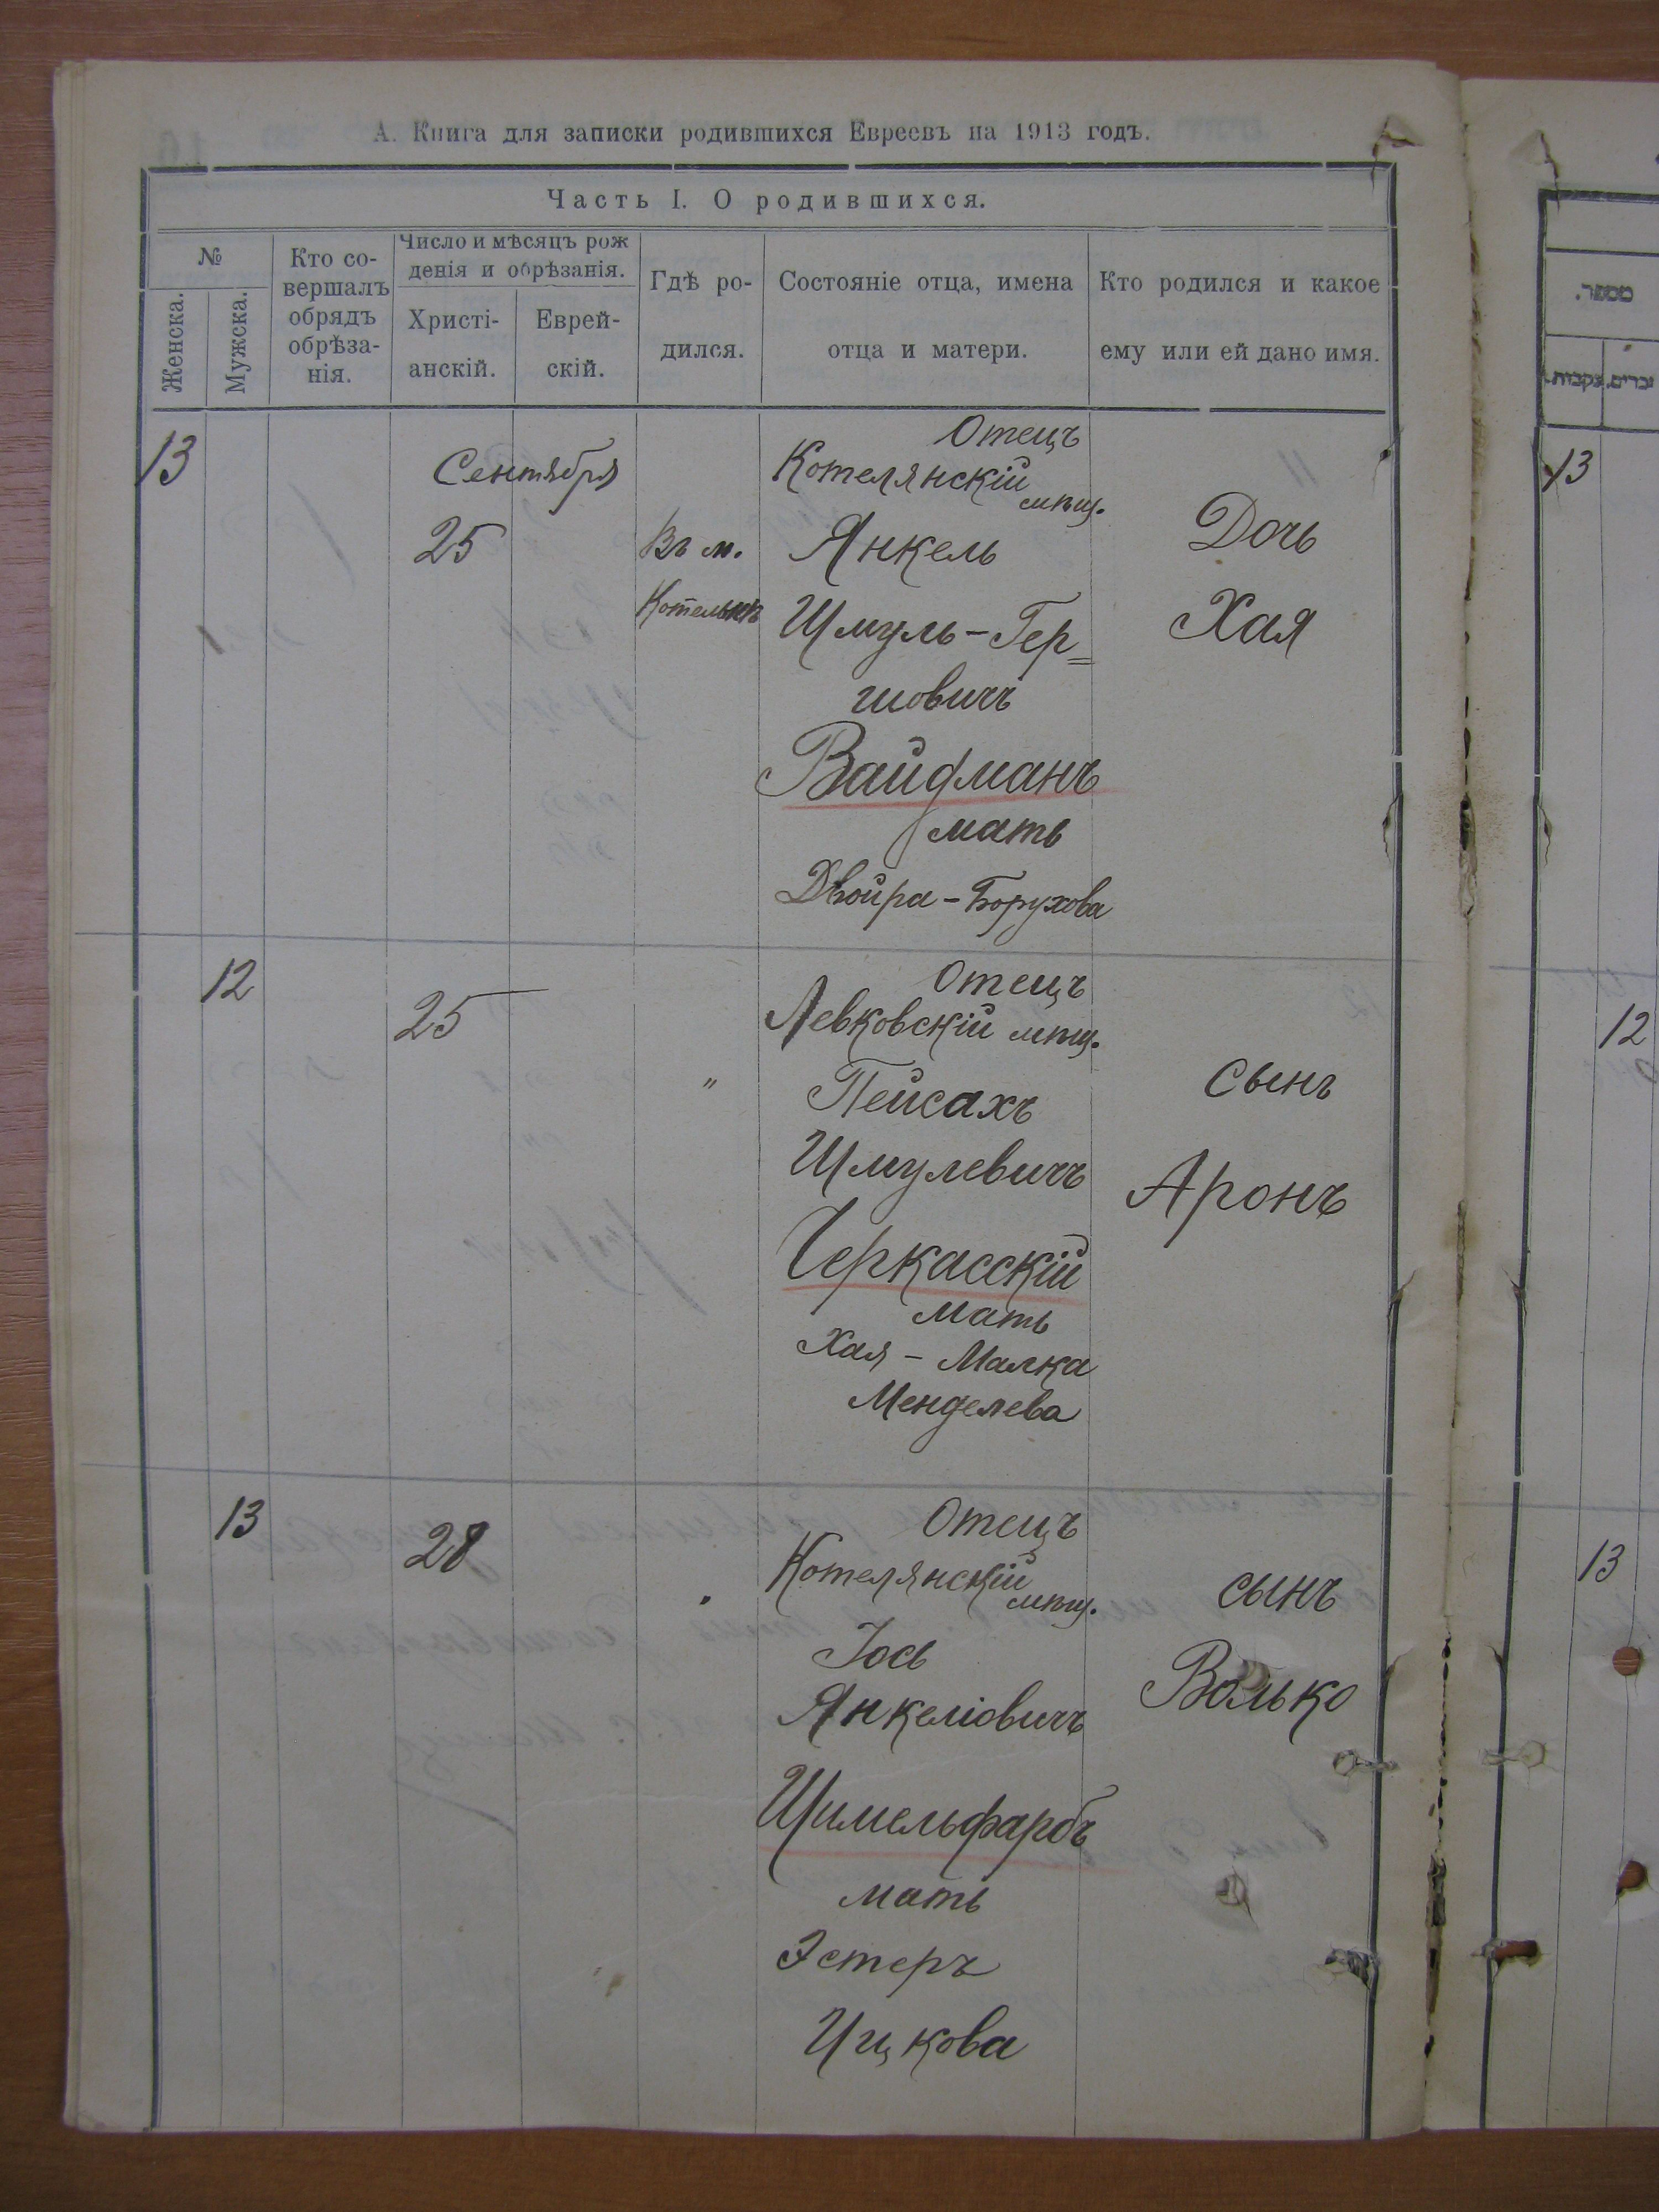 А. Книга для записки родившихся Евреевъ на 1913 годъ.
Часть I. О родившихся.
№
Женска.
Мужска.
Кто со-
вершалъ
обрядъ
обрѣза-
нія.
Число и мѣсяцъ рож
денія и обрѣзанія.
Христі-
анскій.
Еврей-
скій.
Гдѣ ро-
дился.
Состояніе отца, имена
отца и матери.
Кто родился и какое
ему или ей дано имя.
13
Сентября
25
Въ м.
Котельнѣ
Отецъ
Котелянскій
мѣщ.
Янкель
Шмуль-Гер=
шовичъ
Вайдманъ
мать
Двойра-Борухова
Дочь
Хая
12
25
"
Отецъ
Левковскій мѣщ.
Пейсахъ
Шмулевичъ
Черкасскій
мать
Хая-Малка
Менделева
сынъ
Аронъ
13
28
"
Отецъ
Котелянскій
мѣщ.
Іось
Янкеліовичъ
Шимельфарбъ
мать
Эстеръ
Ицкова
сынъ
Волько
מספר.
נקבות.
זכרים.
13
12
13